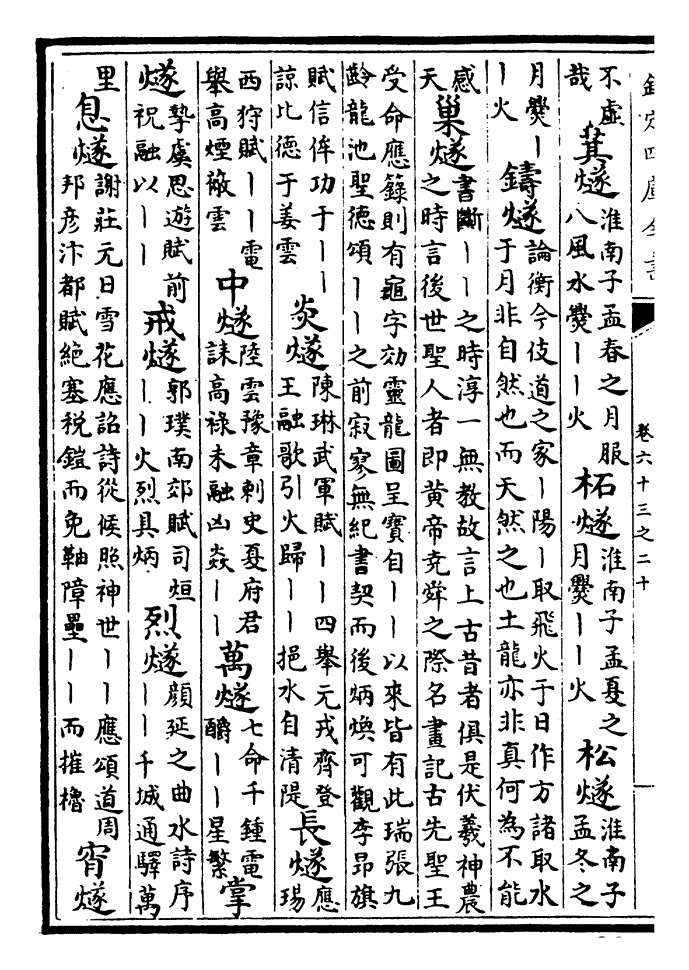 欽定四庫全書
卷六十三之二十
不虛
哉
萁燧
淮南子孟春之月服
八風水爨丨丨火
柘燧
淮南子孟夏之
月爨丨丨火
松燧
淮南子
孟冬之
月爨丨
丨火
鑄燧
論衡今伎道之家丨陽丨取飛火于日作方諸取水
于月非自然也而天然之也土龍亦非真何為不能
感
天
巢燧
書斷丨丨之時淳一無教故言上古昔者俱是伏羲神農
之時言後世聖人者即黃帝堯舜之際名畫記古先聖王
受命應籙則有龜字効靈龍圖呈寶自丨丨以來皆有此瑞張九
齡龍池聖德頌丨丨之前寂寥無紀書契而後炳煥可觀李昂旗
賦信侔功于丨丨
諒比德于姜雲
炎燧
陳琳武軍賦丨丨四舉元戎齊登
王融歌引火歸丨丨挹水自清隄
長燧
應
瑒
西狩賦丨丨電
舉高煙蔽雲
中燧
陸雲豫章刺史夏府君
誄高祿未融凶焱丨丨
萬燧
七命千鍾電
釂丨丨星繁
掌
燧
摯虞思遊賦前
祝融以丨丨
戒燧
郭璞南郊賦司烜
丨丨火烈具炳
烈燧
顏延之曲水詩序
丨丨千城通驛萬
里
息燧
謝莊元日雪花應詔詩從候照神世丨丨應頌道周
邦彥汴都賦絕塞稅鎧而免䩜障壘丨丨而摧櫓
宵燧